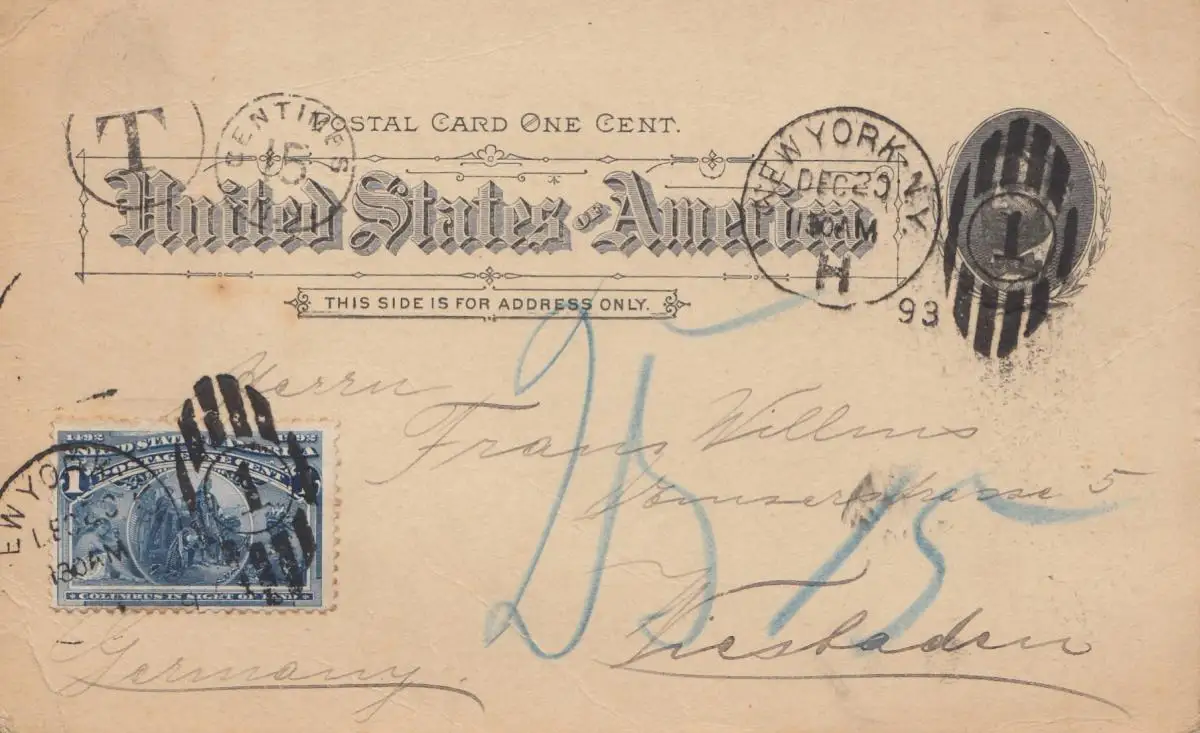 T
CENTIMES
15
POSTAL CARD ONE CENT.
United States of America
THIS SIDE IS FOR ADDRESS ONLY.
NEW YORK, N.Y.
DEC 20
1130AM
H
93
1
25
Herrn
Franz Willms
5
15
Wiesbaden
Germany.
1492 1892
UNITED STATES OF AMERICA
POSTAGE ONE CENT
1
COLUMBUS IN SIGHT OF LAND
EW YORK
130AM
1